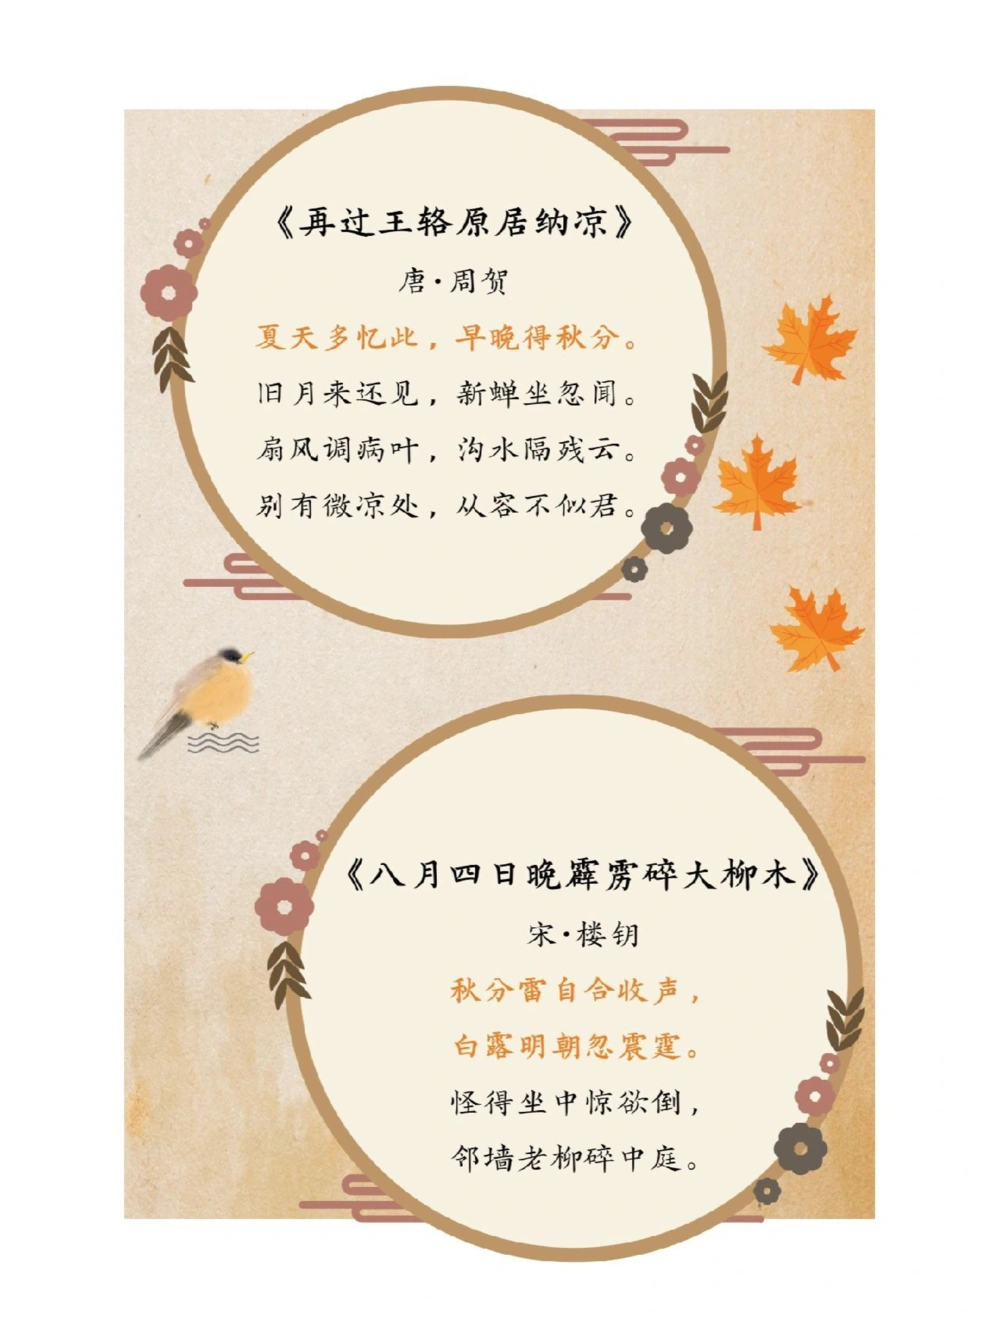 《再过王辂原居纳凉》
唐·周贺
夏天多忆此，早晚得秋分。
旧月来还见，新蝉坐忽闻。
扇风调病叶，沟水隔残云。
别有微凉处，从容不似君。
《八月四日晚霹雳碎大柳木》
宋·楼钥
秋分雷自合收声，
白露明朝忽震霆。
怪得坐中惊欲倒，
邻墙老柳碎中庭。